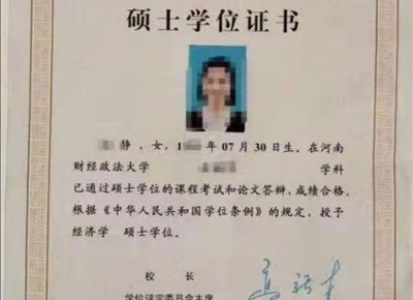 硕士学位证书
静，女，1 年07月30日生。在河南
财经政法大学 学科
已通过硕士学位的课程考试和论文答辩，成绩合格。
根据《中华人民共和国学位条例》的规定，授予
经济学 硕士学位。
校 长
学位评定委员会主席